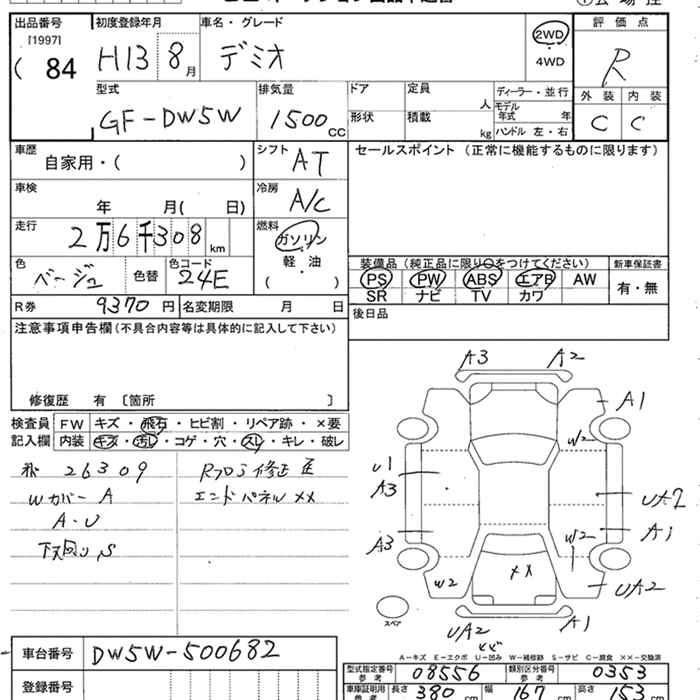 出品番号 初度登録年月 車名・グレード 評価点
[1997] 84 H13 8月 デミオ 2WD 4WD R
型式 GF-DW5W 排気量 1500cc ドア 形状 定員 人 積載 kg ディーラー・並行 モデル年式 年 ハンドル 左・右 外装 内装 C C
車歴 自家用・( ) シフト AT セールスポイント (正常に機能するものに限ります)
車検 年 月( 日) 冷房 A/C
走行 2万6千308km 燃料 ガソリン 軽・油 ( )
色 ベージュ 色替 色コード 24E
装備品 (純正品に限り○をつけてください) 新車保証書
PS PW ABS エアB AW 有・無
SR ナビ TV カワ
R券 9370円 名変期限 月 日 後日品
注意事項申告欄(不具合内容等は具体的に記入して下さい)
修復歴 有 〔箇所 〕
検査員 FW キズ・飛石・ヒビ割・リペア跡・×要
記入欄 内装 キズ・汚レ・コゲ・穴・スレ・キレ・破レ
26309
Wカバー A
A・U
下回り S
Rフロア修正
エンドパネル ××
A3 A2
A1
W2
U1
A3
UA2
A1
A3
W2
W2
××
UA2
スペア
UA2
A1
××
A-キズ E-エクボ U-凹み W-補修跡 S-サビ C-腐食 ××-交換済
車台番号 DW5W-500682
型式指定番号 参考 08556 類別区分番号 参考 0353
登録番号
車庫証明用 参考 長さ 380cm 幅 167cm 高さ 153cm